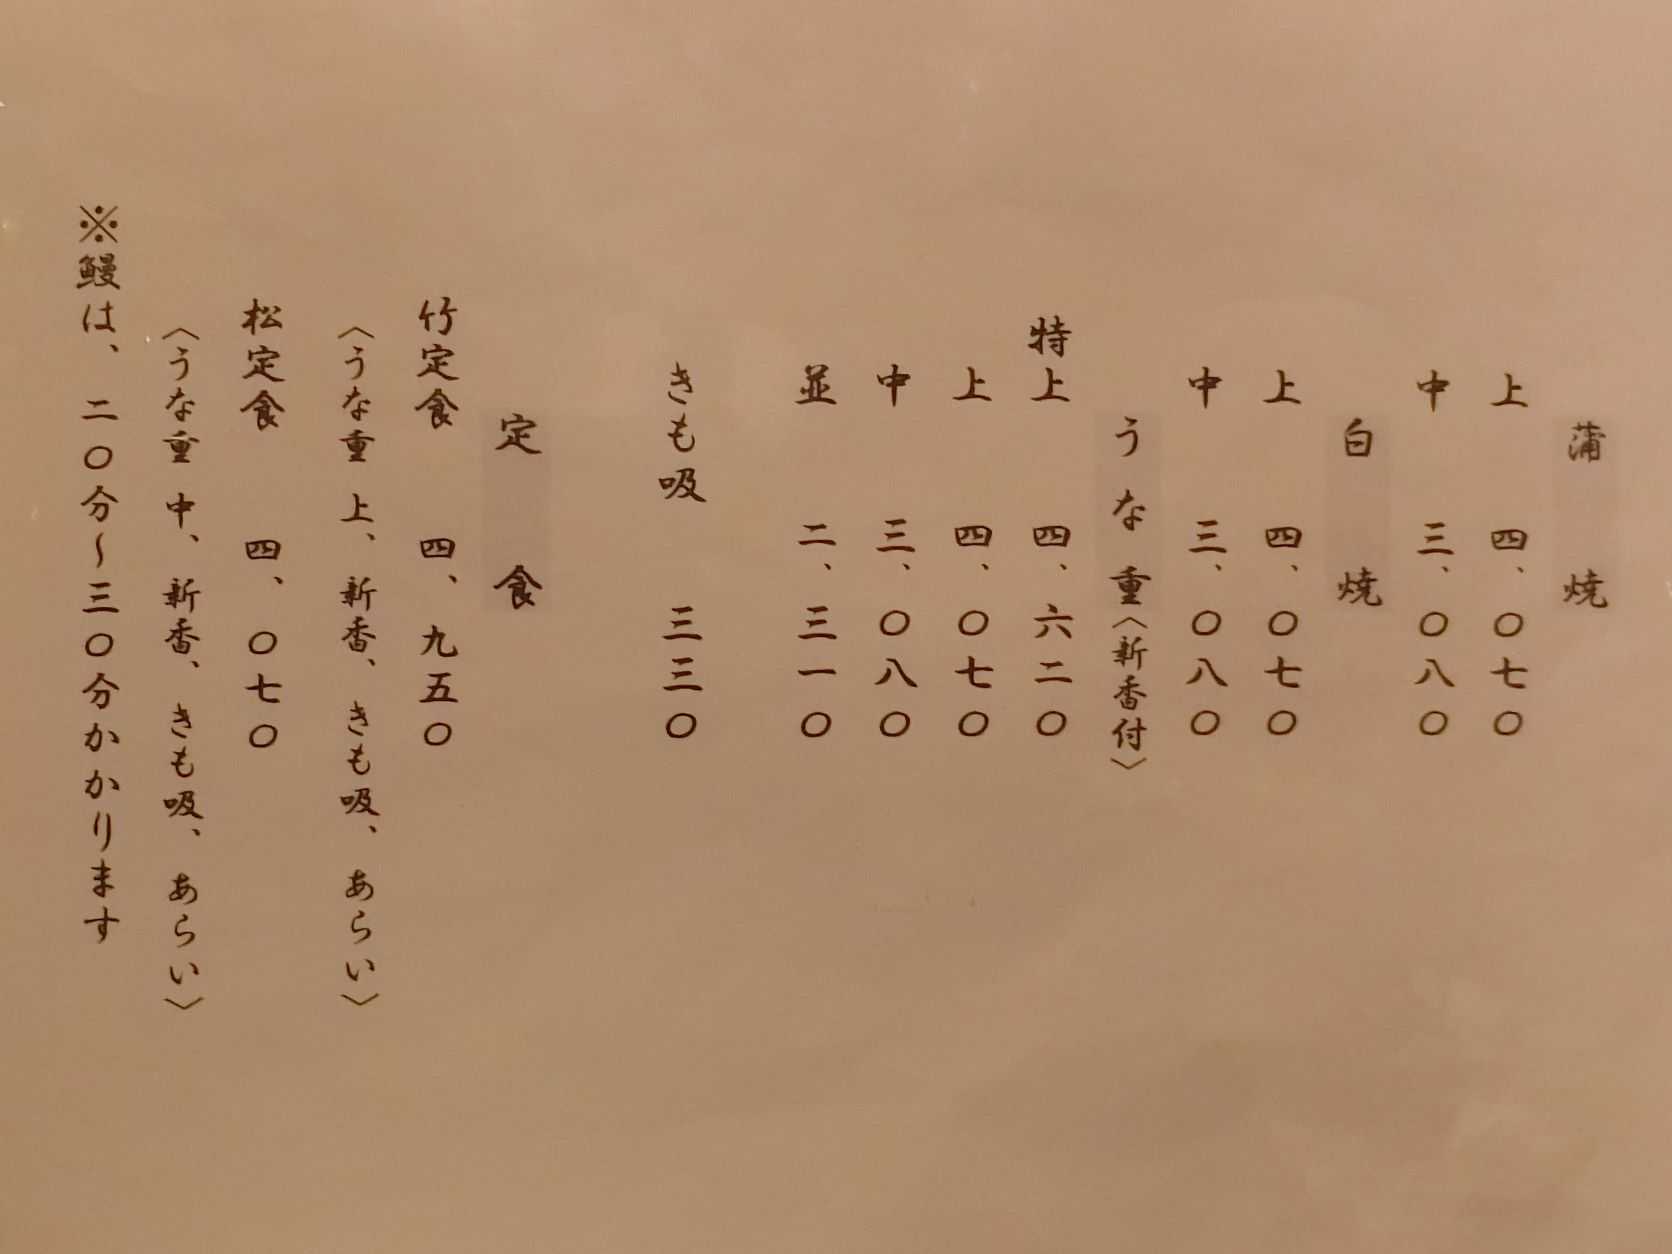 蒲焼
上 四、〇七〇
中 三、〇八〇
白焼
上 四、〇七〇
中 三、〇八〇
うな重〈新香付〉
特上 四、六二〇
上 四、〇七〇
中 三、〇八〇
並 二、三一〇
きも吸 三三〇
定食
竹定食 四、九五〇
〈うな重 上、新香、きも吸、あらい〉
松定食 四、〇七〇
〈うな重 中、新香、きも吸、あらい〉
※鰻は、二〇分～三〇分かかります